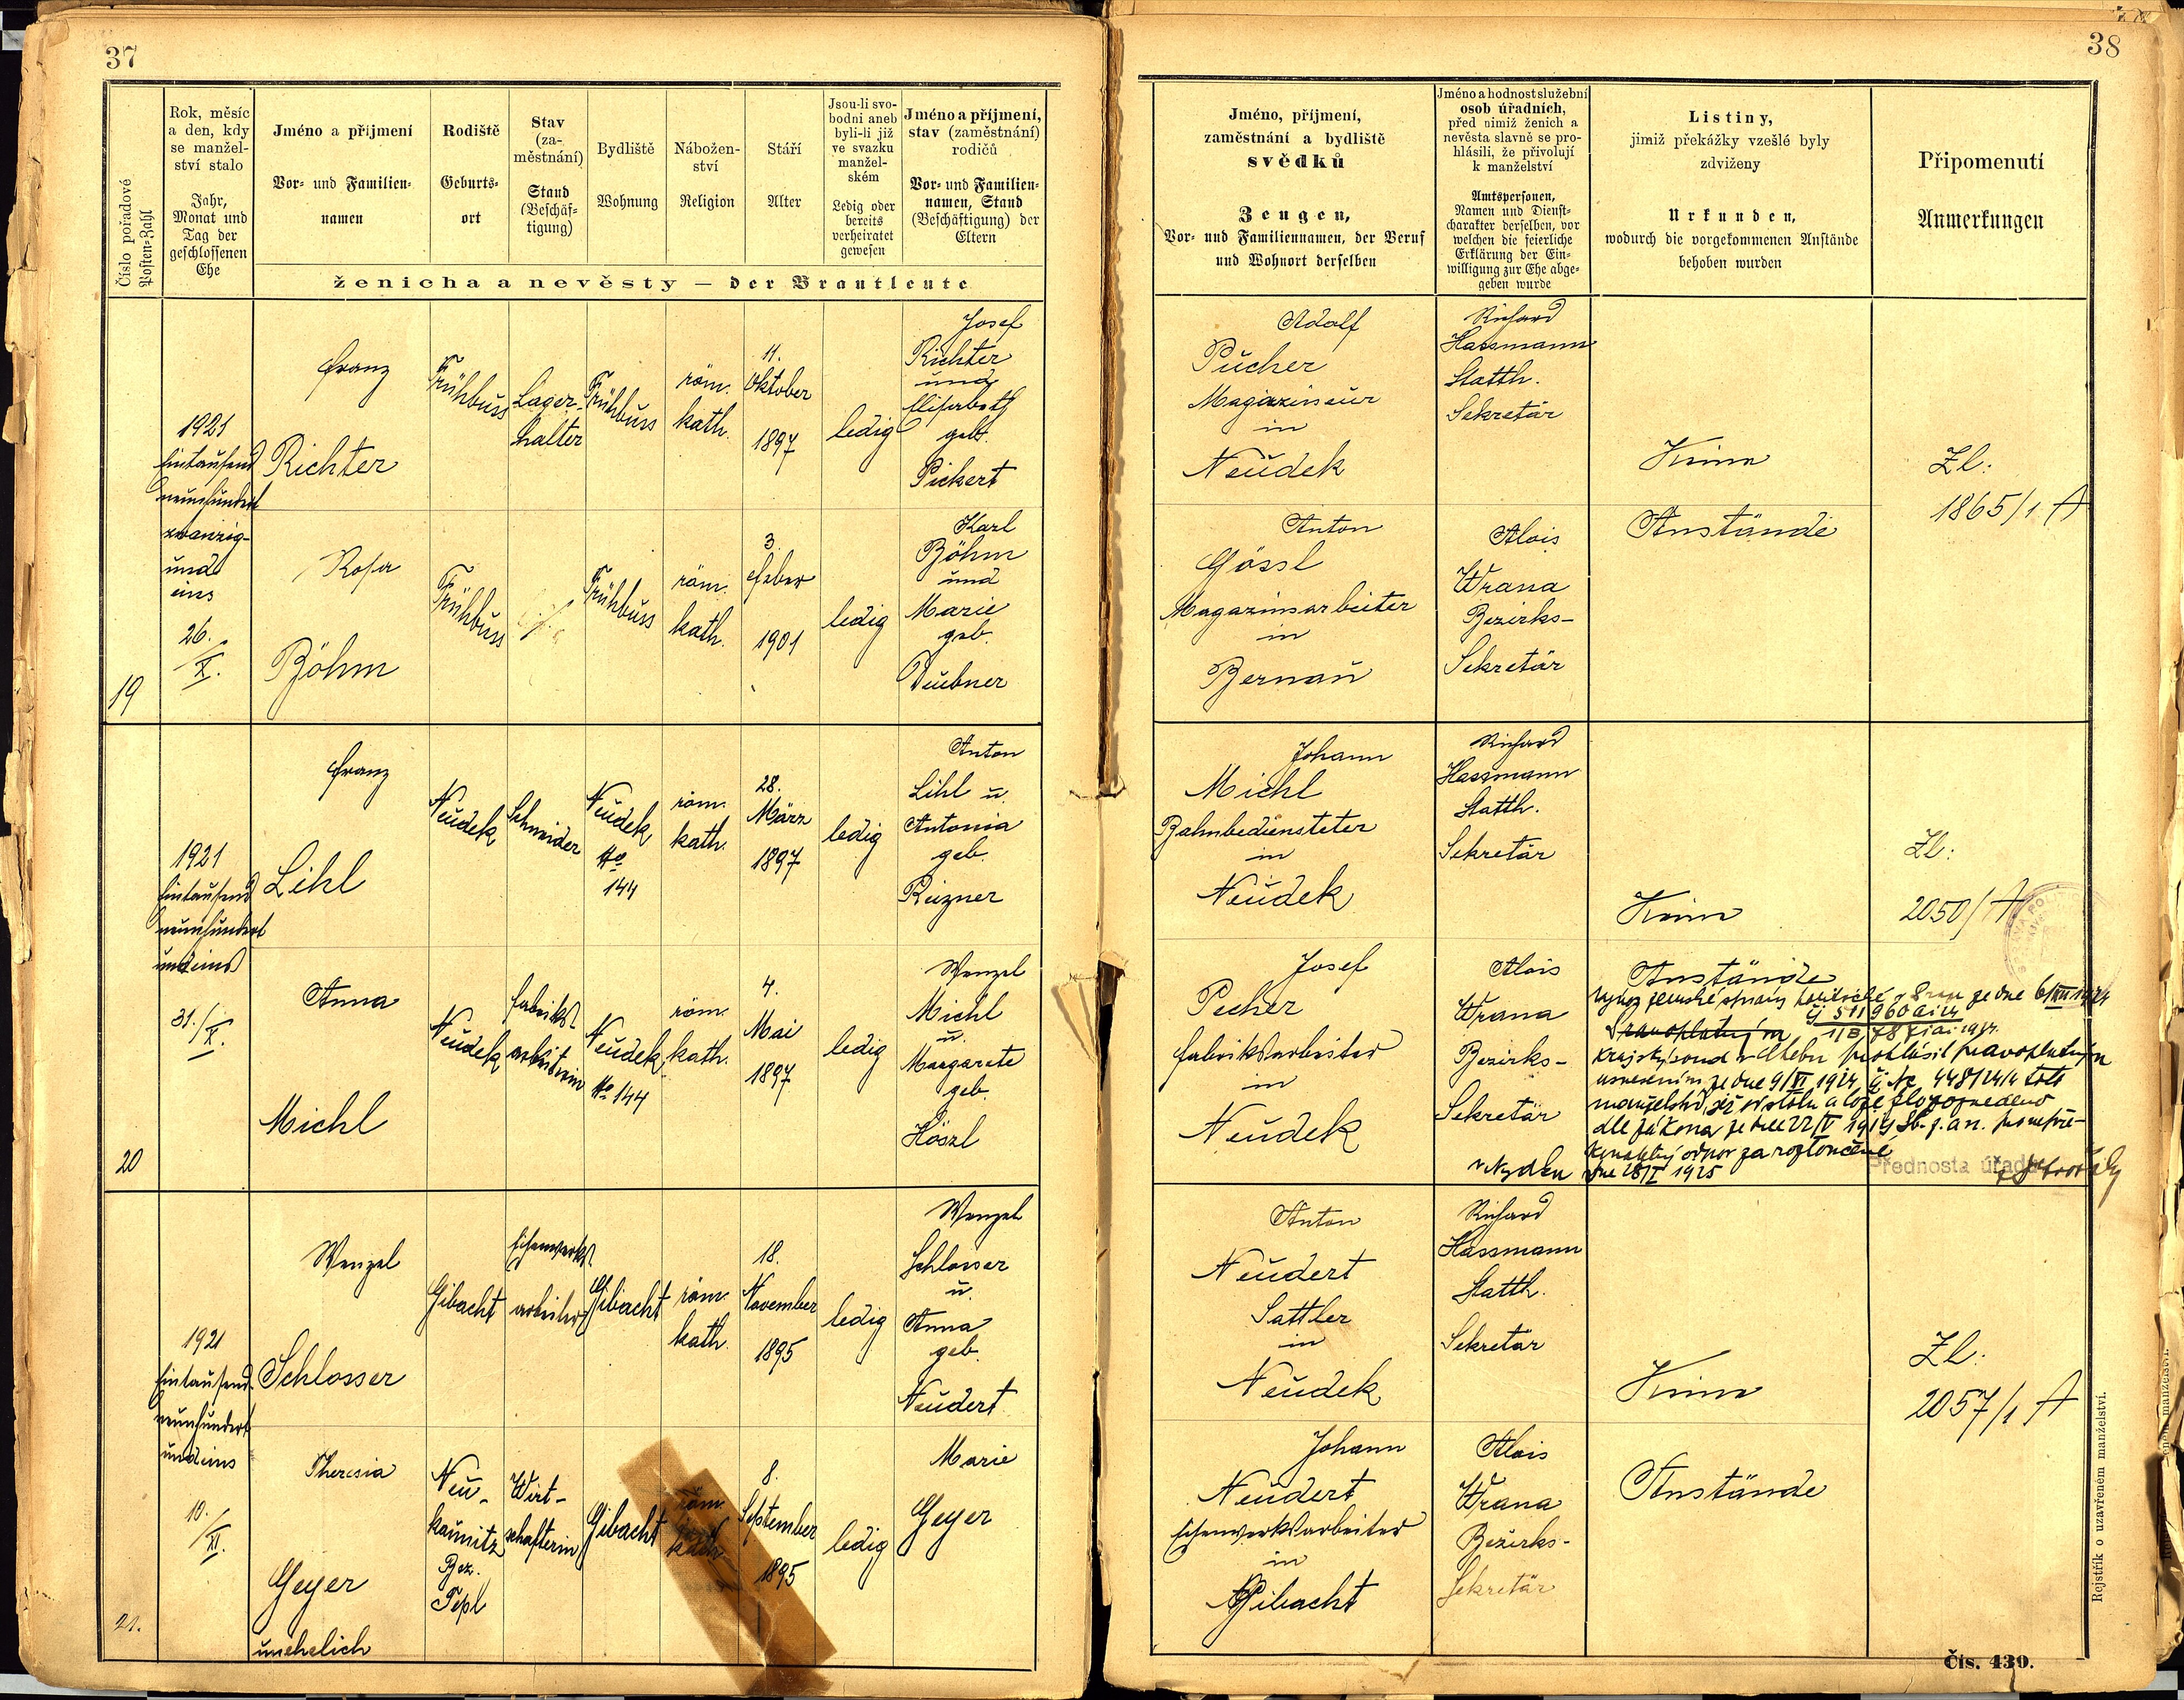 37
Číslo pořadové
Posten-Zahl
Rok, měsíc
a den, kdy
se manžel-
ství stalo
Jahr,
Monat und
Tag der
geschlossenen
Ehe
Jméno a příjmení
Vor- und Familien-
namen
Rodiště
Geburts-
ort
Stav
(za-
městnání)
Stand
(Beschäf-
tigung)
Bydliště
Wohnung
Nábožen-
ství
Religion
Stáří
Alter
Jsou-li svo-
bodni aneb
byli-li již
ve svazku
manžel-
ském
Ledig oder
bereits
verheiratet
gewesen
Jméno a příjmení,
stav (zaměstnání)
rodičů
Vor- und Familien-
namen, Stand
(Beschäftigung) der
Eltern
ženicha a nevěsty — der Brautleute
19
1921
Eintausend
neunhundert
zwanzig-
und
eins
26./
X.
Franz
Richter
Frühbuss
Lager-
halter
Frühbuss
röm.
kath.
11.
Oktober
1897
ledig
Josef
Richter
und
Elisabeth
geb.
Pickert
Rosa
Böhm
Frühbuss
Frühbuss
röm.
kath.
3.
Feber
1901
ledig
Karl
Böhm
und
Marie
geb.
Deubner
20
1921
Eintausend
neunhundert
undeins
31./X.
Franz
Lihl
Neudek
Schneider
Neudek
No
144
röm.
kath.
28.
März
1897
ledig
Anton
Lihl u.
Antonia
geb.
Reizner
Anna
Michl
Neudek
Fabriks-
arbeiterin
Neudek
No 144
röm.
kath.
4.
Mai
1897
ledig
Wenzel
Michl
u.
Margarete
geb.
Höszl
21.
1921
Eintausend
neunhundert
undeins
10./
XI.
Wenzel
Schlosser
Gibacht
Eisenwerks-
arbeiter
Gibacht
röm.
kath.
18.
November
1895
ledig
Wenzel
Schlosser
u.
Anna
geb.
Neudert
Theresia
Geyer
unehelich
Neu-
kaunitz
Bez.
Tepl
Wirt-
schafterin
Gibacht
röm.
kath.
8.
September
1895
ledig
Marie
Geyer
38
Jméno, příjmení,
zaměstnání a bydliště
svědků
Zeugen,
Vor- und Familiennamen, der Beruf
und Wohnort derselben
Jméno a hodnost služební
osob úřadních,
před nimiž ženich a
nevěsta slavně se pro-
hlásili, že přivolují
k manželství
Amtspersonen,
Namen und Dienst-
charakter derselben, vor
welchen die feierliche
Erklärung der Ein-
willigung zur Ehe abge-
geben wurde
Listiny,
jimiž překážky vzešlé byly
zdviženy
Urkunden,
wodurch die vorgekommenen Anstände
behoben wurden
Připomenutí
Anmerkungen
Adolf
Pücher
Magazineur
in
Neudek
Richard
Hassmann
Statth.
Sekretär
Keine
Anstände
Zl:
1865/1 A
Anton
Gössl
Magazinsarbeiter
in
Bernau
Alois
Wrana
Bezirks-
Sekretär
Johann
Michl
Bahnbediensteter
in
Neudek
Richard
Hassmann
Statth.
Sekretär
Keine
Anstände
Zl:
2050/ A
Josef
Pecher
Fabriksarbeiter
in
Neudek
Alois
Wrana
Bezirks-
Sekretär
zemské správy politické v Praze ze dne 6/XII 1924
Krajský soud v Chebu prohlásil pravoplatným
usnesením ze dne 9/VI 1924 448/24/4 toto
manželství, již od stolu a lože
dle zákona ze dne 22/V 1919 Sb. z. a n. pro nepře-
konatelný odpor za rozloučené
dne 28/I 1925
Přednosta úřadu
Anton
Neudert
Sattler
in
Neudek
Richard
Hassmann
Statth.
Sekretär
Keine
Anstände
Zl:
2057/1 A
Johann
Neudert
Eisenwerksarbeiter
in
Gibacht
Alois
Wrana
Bezirks-
Sekretär
Rejstřík o uzavřeném manželství.
Čís. 430.